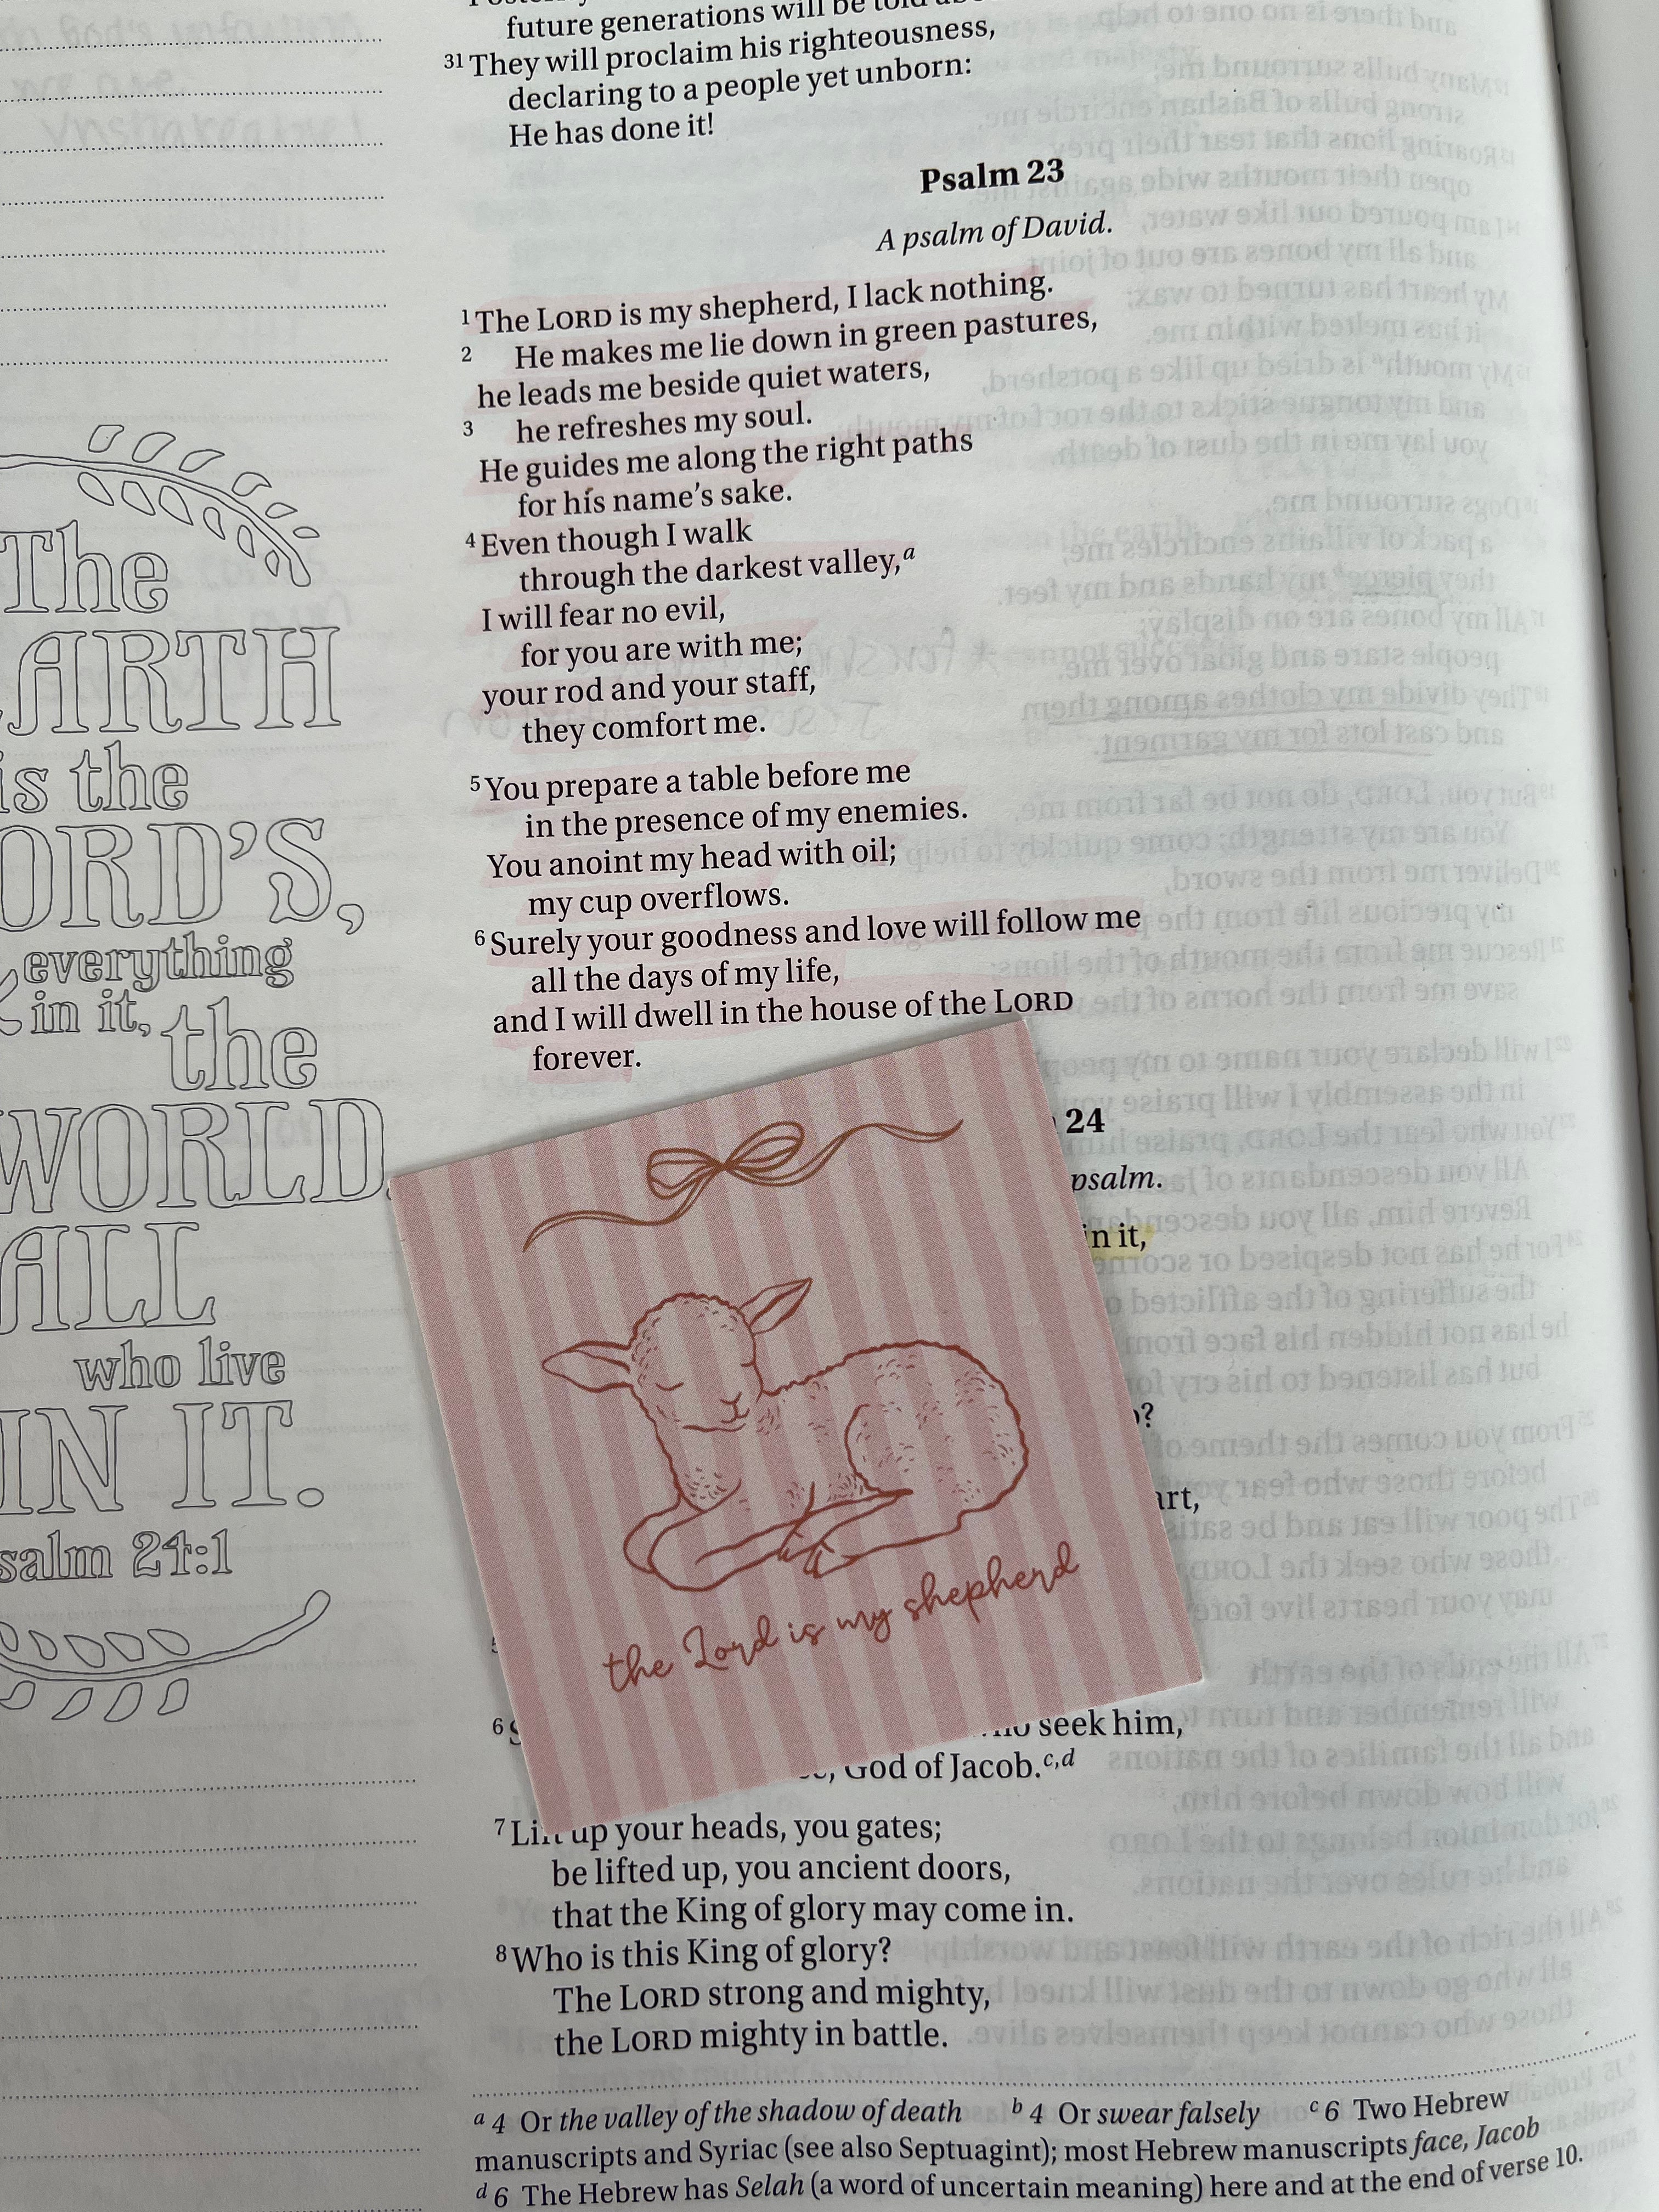 future generations will be told
31 They will proclaim his righteousness,
declaring to a people yet unborn:
He has done it!
Psalm 23
A psalm of David.
1 The LORD is my shepherd, I lack nothing.
2 He makes me lie down in green pastures,
he leads me beside quiet waters,
3 he refreshes my soul.
He guides me along the right paths
for his name's sake.
4 Even though I walk
through the darkest valley,a
I will fear no evil,
for you are with me;
your rod and your staff,
they comfort me.
5 You prepare a table before me
in the presence of my enemies.
You anoint my head with oil;
my cup overflows.
6 Surely your goodness and love will follow me
all the days of my life,
and I will dwell in the house of the LORD
forever.
24
psalm.
in it,
the Lord is my shepherd
6
seek him,
God of Jacob.c,d
7 Lift up your heads, you gates;
be lifted up, you ancient doors,
that the King of glory may come in.
8 Who is this King of glory?
The LORD strong and mighty,
the LORD mighty in battle.
a 4 Or the valley of the shadow of death b 4 Or swear falsely c 6 Two Hebrew
manuscripts and Syriac (see also Septuagint); most Hebrew manuscripts face, Jacob
d 6 The Hebrew has Selah (a word of uncertain meaning) here and at the end of verse 10.
The
ARTH
is the
ORD'S,
everything
in it, the
WORLD,
ALL
who live
IN IT.
salm 24:1